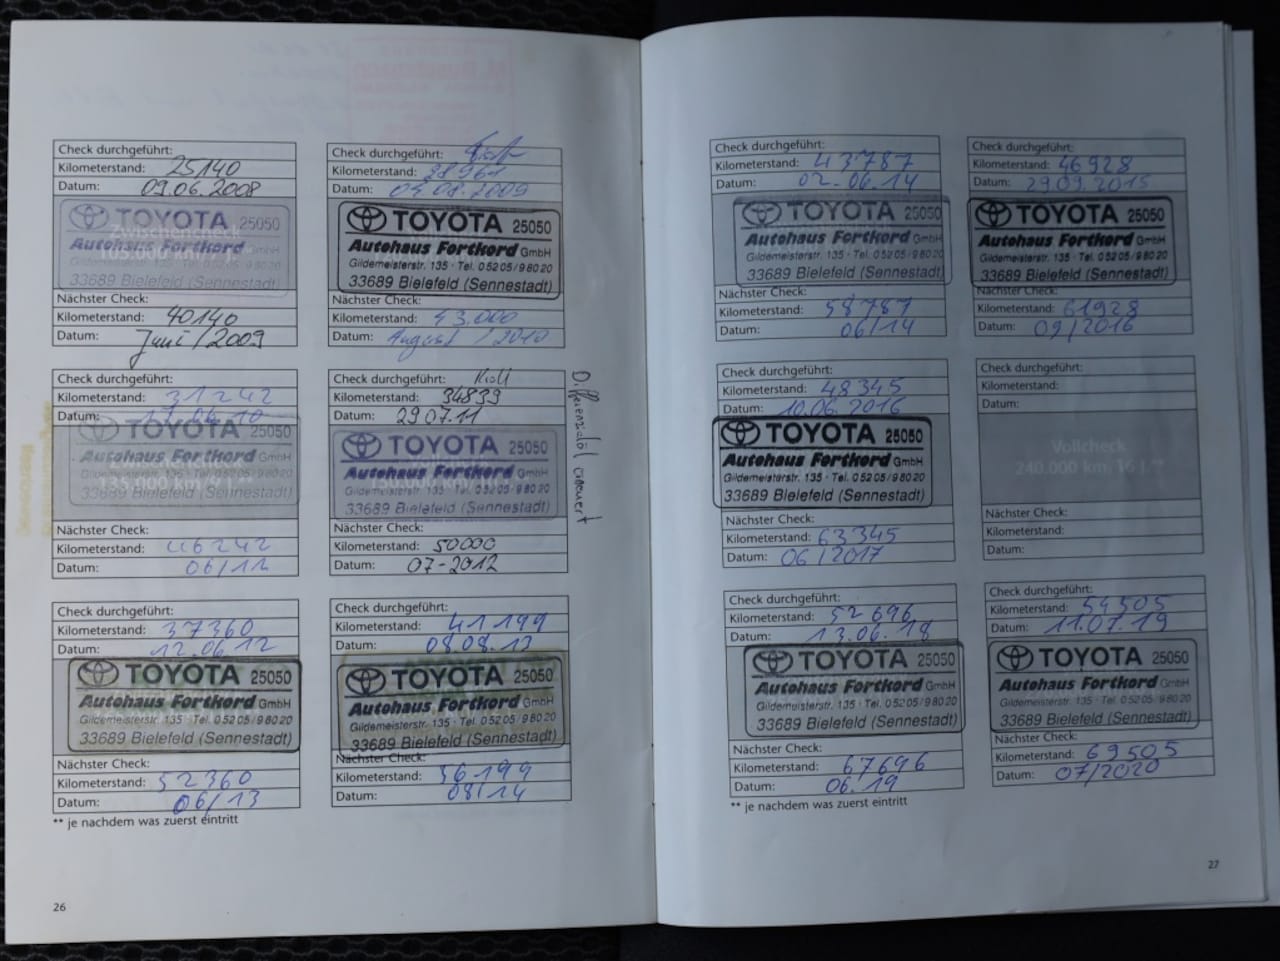 Check durchgeführt:
Kilometerstand: 25140
Datum: 09.06.2008
TOYOTA 25050
Autohaus Fortkord GmbH
Gildemeisterstr. 135 · Tel. 05205/98020
33689 Bielefeld (Sennestadt)
Nächster Check:
Kilometerstand: 40140
Datum: Juni/2009
Check durchgeführt:
Kilometerstand: 28961
Datum: 05.08.2009
TOYOTA 25050
Autohaus Fortkord GmbH
Gildemeisterstr. 135 · Tel. 05205/98020
33689 Bielefeld (Sennestadt)
Nächster Check:
Kilometerstand: 43.000
Datum: August / 2010
Check durchgeführt:
Kilometerstand: 31242
Datum: 17.06.10
TOYOTA 25050
Autohaus Fortkord GmbH
Gildemeisterstr. 135 · Tel. 05205/98020
135.000 km/9 J.**
33689 Bielefeld (Sennestadt)
Nächster Check:
Kilometerstand: 46242
Datum: 06/11
Check durchgeführt:
Kilometerstand: 34839
Datum: 29.07.11
TOYOTA 25050
Autohaus Fortkord GmbH
Gildemeisterstr. 135 · Tel. 05205/98020
33689 Bielefeld (Sennestadt)
Nächster Check:
Kilometerstand: 50000
Datum: 07-2012
Differenzialöl erneuert
Check durchgeführt:
Kilometerstand: 37360
Datum: 12.06.12
TOYOTA 25050
Autohaus Fortkord GmbH
Gildemeisterstr. 135 · Tel. 05205/98020
33689 Bielefeld (Sennestadt)
Nächster Check:
Kilometerstand: 52360
Datum: 06/13
Check durchgeführt:
Kilometerstand: 41199
Datum: 08.08.13
TOYOTA 25050
Autohaus Fortkord GmbH
Gildemeisterstr. 135 · Tel. 05205/98020
33689 Bielefeld (Sennestadt)
Nächster Check:
Kilometerstand: 56199
Datum: 08/14
** je nachdem was zuerst eintritt
26
Check durchgeführt:
Kilometerstand: 43787
Datum: 02.06.14
TOYOTA 25050
Autohaus Fortkord GmbH
Gildemeisterstr. 135 · Tel. 05205/98020
33689 Bielefeld (Sennestadt)
Nächster Check:
Kilometerstand: 58787
Datum: 06/14
Check durchgeführt:
Kilometerstand: 46928
Datum: 29.09.2015
TOYOTA 25050
Autohaus Fortkord GmbH
Gildemeisterstr. 135 · Tel. 05205/98020
33689 Bielefeld (Sennestadt)
Nächster Check:
Kilometerstand: 61928
Datum: 09/2016
Check durchgeführt:
Kilometerstand: 48345
Datum: 10.06.2016
TOYOTA 25050
Autohaus Fortkord GmbH
Gildemeisterstr. 135 · Tel. 05205/98020
33689 Bielefeld (Sennestadt)
Nächster Check:
Kilometerstand: 63345
Datum: 06/2017
Check durchgeführt:
Kilometerstand:
Datum:
Vollcheck
240.000 km/16 J.**
Nächster Check:
Kilometerstand:
Datum:
Check durchgeführt:
Kilometerstand: 52696
Datum: 13.06.18
TOYOTA 25050
Autohaus Fortkord GmbH
Gildemeisterstr. 135 · Tel. 05205/98020
33689 Bielefeld (Sennestadt)
Nächster Check:
Kilometerstand: 67696
Datum: 06.19
Check durchgeführt:
Kilometerstand: 54505
Datum: 11.07.19
TOYOTA 25050
Autohaus Fortkord GmbH
Gildemeisterstr. 135 · Tel. 05205/98020
33689 Bielefeld (Sennestadt)
Nächster Check:
Kilometerstand: 69505
Datum: 07/2020
** je nachdem was zuerst eintritt
27